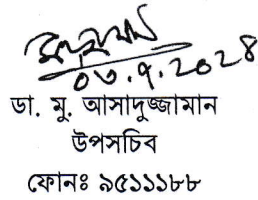 ০৩.৭.২০২৪
ডা. মু. আসাদুজ্জামান
উপসচিব
ফোনঃ ৯৫১১১৮৮